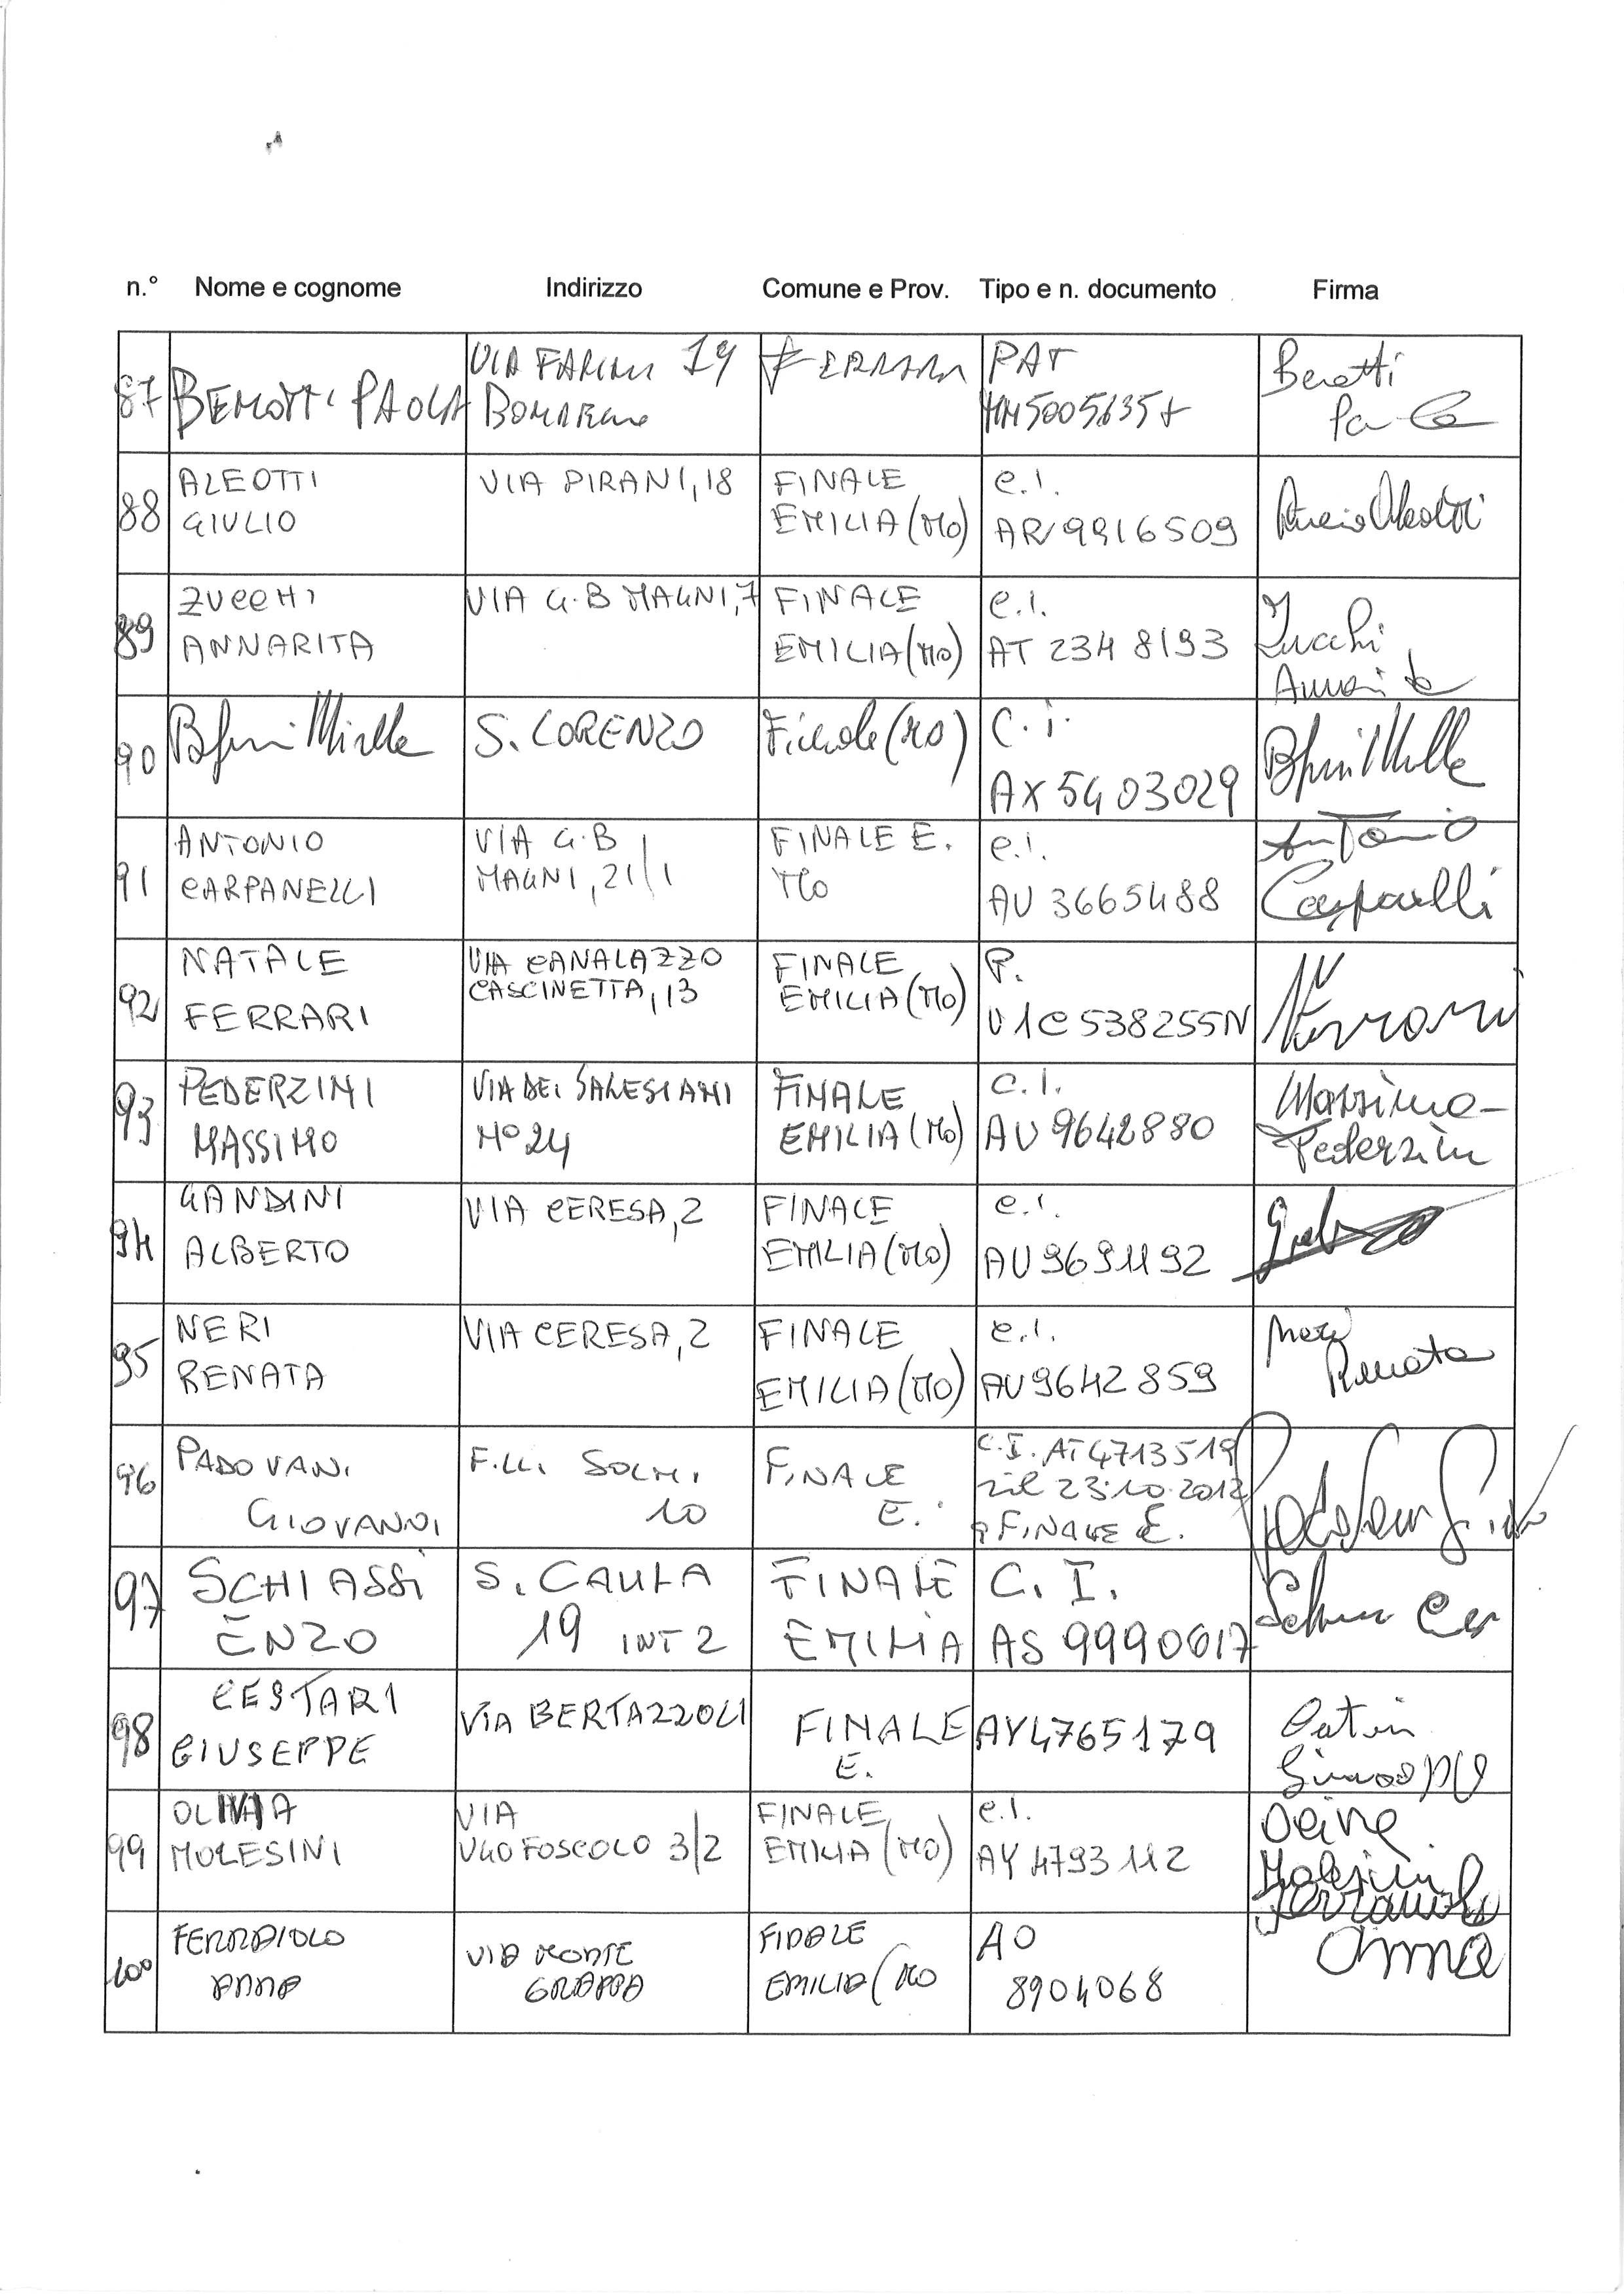 n.° Nome e cognome Indirizzo Comune e Prov. Tipo e n. documento Firma
87 PAOLA VIA 19 PAT
88 ALEOTTI VIA PIRANI, 18 FINALE C.I.
GIULIO EMILIA (MO) AR 9916509
89 ZUCCHI VIA G.B MAGNI, 7 FINALE C.I. Zucchi
ANNARITA EMILIA (MO) AT 234 8193 Annarita
90 S. LORENZO Finale (MO) C.i.
AX 5403029
91 ANTONIO VIA G.B FINALE E. C.I. Antonio
CARPANELLI MAGNI, 21/1 MO AU 3665488 Carpanelli
92 NATALE VIA CANALAZZO FINALE P.
FERRARI CASCINETTA, 13 EMILIA (MO) V1C538255N Ferrari
93 PEDERZINI VIA DEI SALESIANI FINALE C.I. Massimo
MASSIMO N° 24 EMILIA (MO) AU 9642880 Pederzini
94 GANDINI VIA CERESA, 2 FINALE C.I.
ALBERTO EMILIA (MO) AU 9691192
95 NERI VIA CERESA, 2 FINALE C.I. Neri
RENATA EMILIA (MO) AU 9642859 Renata
96 PADOVANI F.LLI SOLMI FINALE C.I. AT 4713519
GIOVANNI 10 E. ril 23.10.2012
FINALE E.
97 SCHIASSI S. CAULA FINALE C. I.
ENZO 19 INT 2 EMILIA AS 9990617
98 CESTARI VIA BERTAZZOLI FINALE AY4765179
GIUSEPPE E. Giuseppe
99 OLIVIA VIA FINALE C.I.
MOLESINI UGO FOSCOLO 3/2 EMILIA (MO) AY 4793112 Molesini
100 FERRAIOLO VIA MONTE FINALE AO Ferraiolo
ANNA GRAPPA EMILIA (MO 8904068 Anna